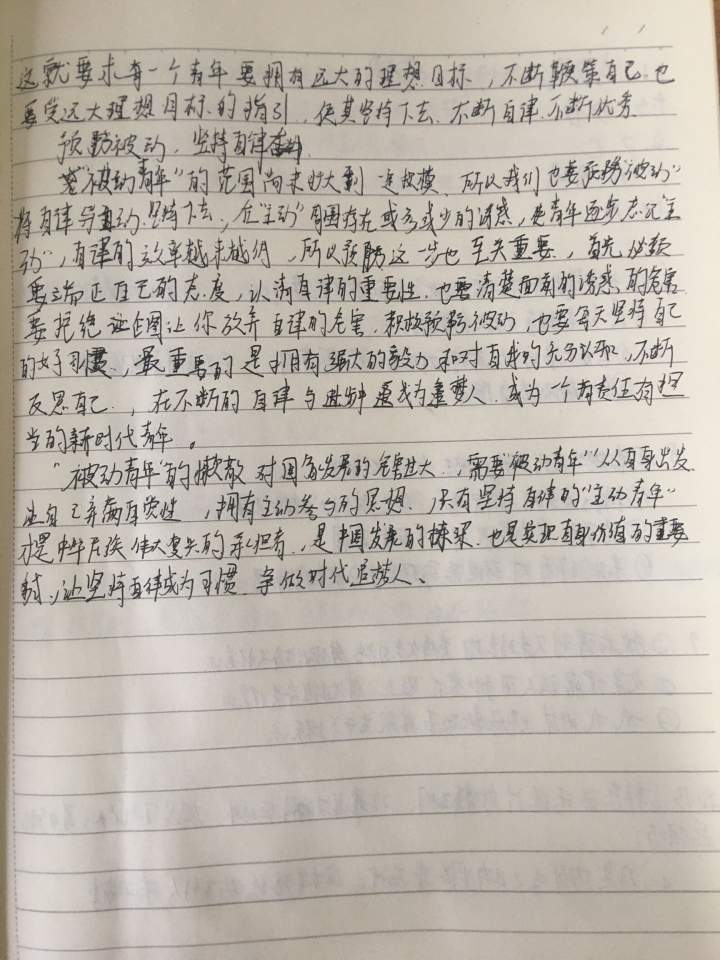 这就要求有一个青年要拥有远大的理想目标，不断鞭策自己也
要受远大理想目标的指引，使其坚持下去，不断自律，不断优秀
预防被动，坚持自律
"被动青年"的范围尚未扩大到一定规模，所以我们也要预防"被动"
将自律与主动坚持下去，在"主动"周围存在或多或少的诱惑，使青年逐步忘记"主
动"，自律的效率越来越低，所以预防这一步也至关重要，首先必须
要端正自己的态度，认清自律的重要性，也要清楚面前的诱惑的危害
要拒绝企图让你放弃自律的危害，积极预防被动，也要每天坚持自己
的好习惯，最重要的是拥有强大的毅力和对自我的充分认知，不断
反思自己，在不断的自律与进步中成为追梦人，成为一个有责任有担
当的新时代青年。
"被动青年"的懒散对国家发展的危害甚大，需要"被动青年"从自身出发
让自己充满自觉性，拥有主动参与的思想，只有坚持自律的"主动青年"
才是中华民族伟大复兴的承担者，是中国发展的栋梁，也是实现自身价值的重要
，让坚持自律成为习惯，争做时代追梦人、